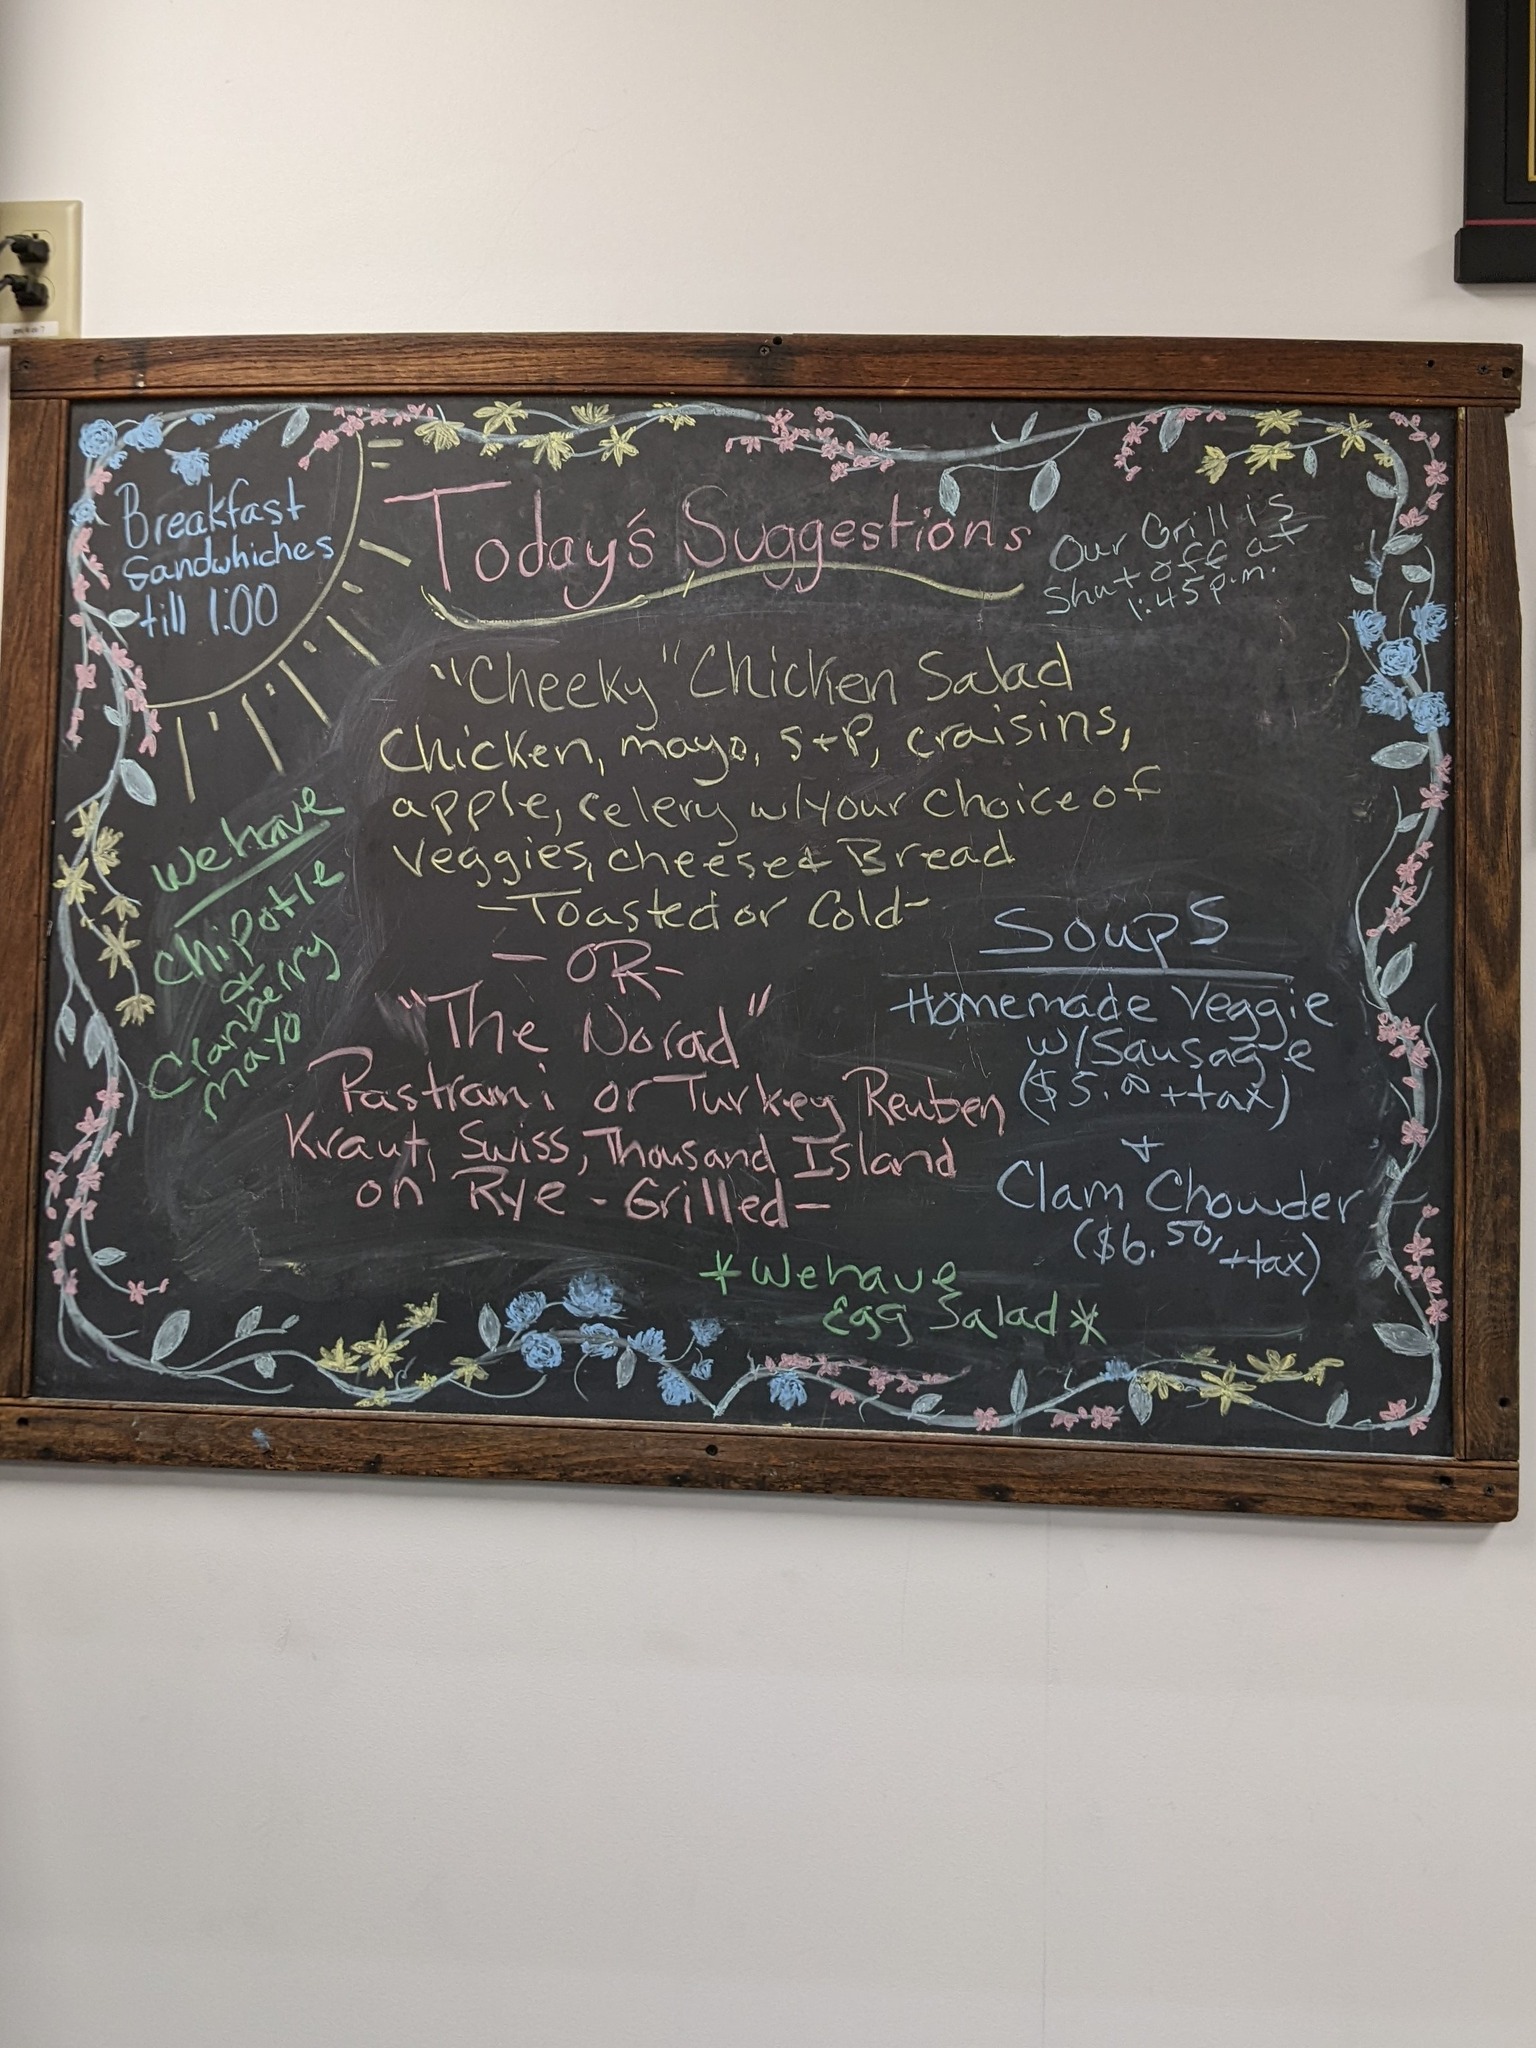 Breakfast
Sandwhiches
till 1:00
Today's Suggestions
Our Grill is
Shut off at
1:45 p.m.
"Cheeky" Chicken Salad
Chicken, mayo, S+P, craisins,
apple, celery w/your choice of
Veggies, cheese & Bread
-Toasted or Cold-
-OR-
"The Norad"
Pastrami or Turkey Reuben
Kraut, Swiss, Thousand Island
on Rye -Grilled-
We have
Chipotle
&
Cranberry
mayo
Soups
Homemade Veggie
w/Sausage
($5.00 +tax)
+
Clam Chowder
($6.50, +tax)
*We have
Egg Salad*